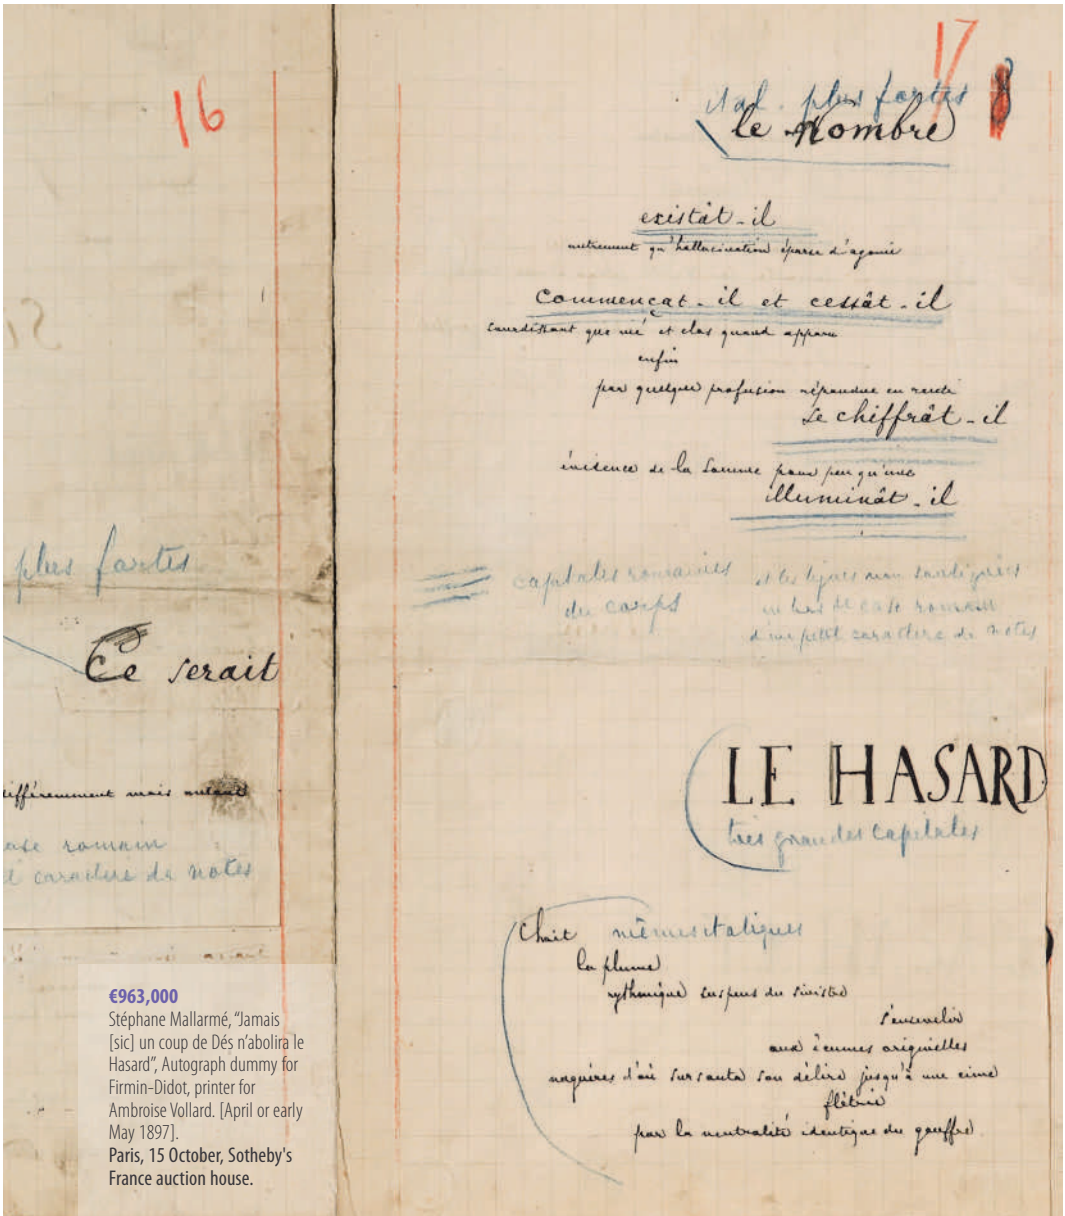 16
plus fortes
Ce serait
différemment mais autant
case romain
caractère de notes
€963,000
Stéphane Mallarmé, “Jamais
[sic] un coup de Dés n’abolira le
Hasard”, Autograph dummy for
Firmin-Didot, printer for
Ambroise Vollard. [April or early
May 1897].
Paris, 15 October, Sotheby's
France auction house.
17
ital. plus fortes
le Nombre
existât-il
autrement qu'hallucination éparse d'agonie
commençât-il et cessât-il
sourdissant que nié et clos quand apparu
enfin
par quelque profusion répandue en rareté
se chiffrât-il
évidence de la somme pour peu qu'une
illuminât-il
capitales romaines
du corps
et les lignes non soulignées
en bas de case romain
d'un petit caractère de notes
LE HASARD
très grandes capitales
Choit mêmes italiques
la plume
rythmique suspens du sinistre
s'ensevelir
aux écumes originelles
naguères d'où sursauta son délire jusqu'à une cime
flétrie
par la neutralité identique du gouffre